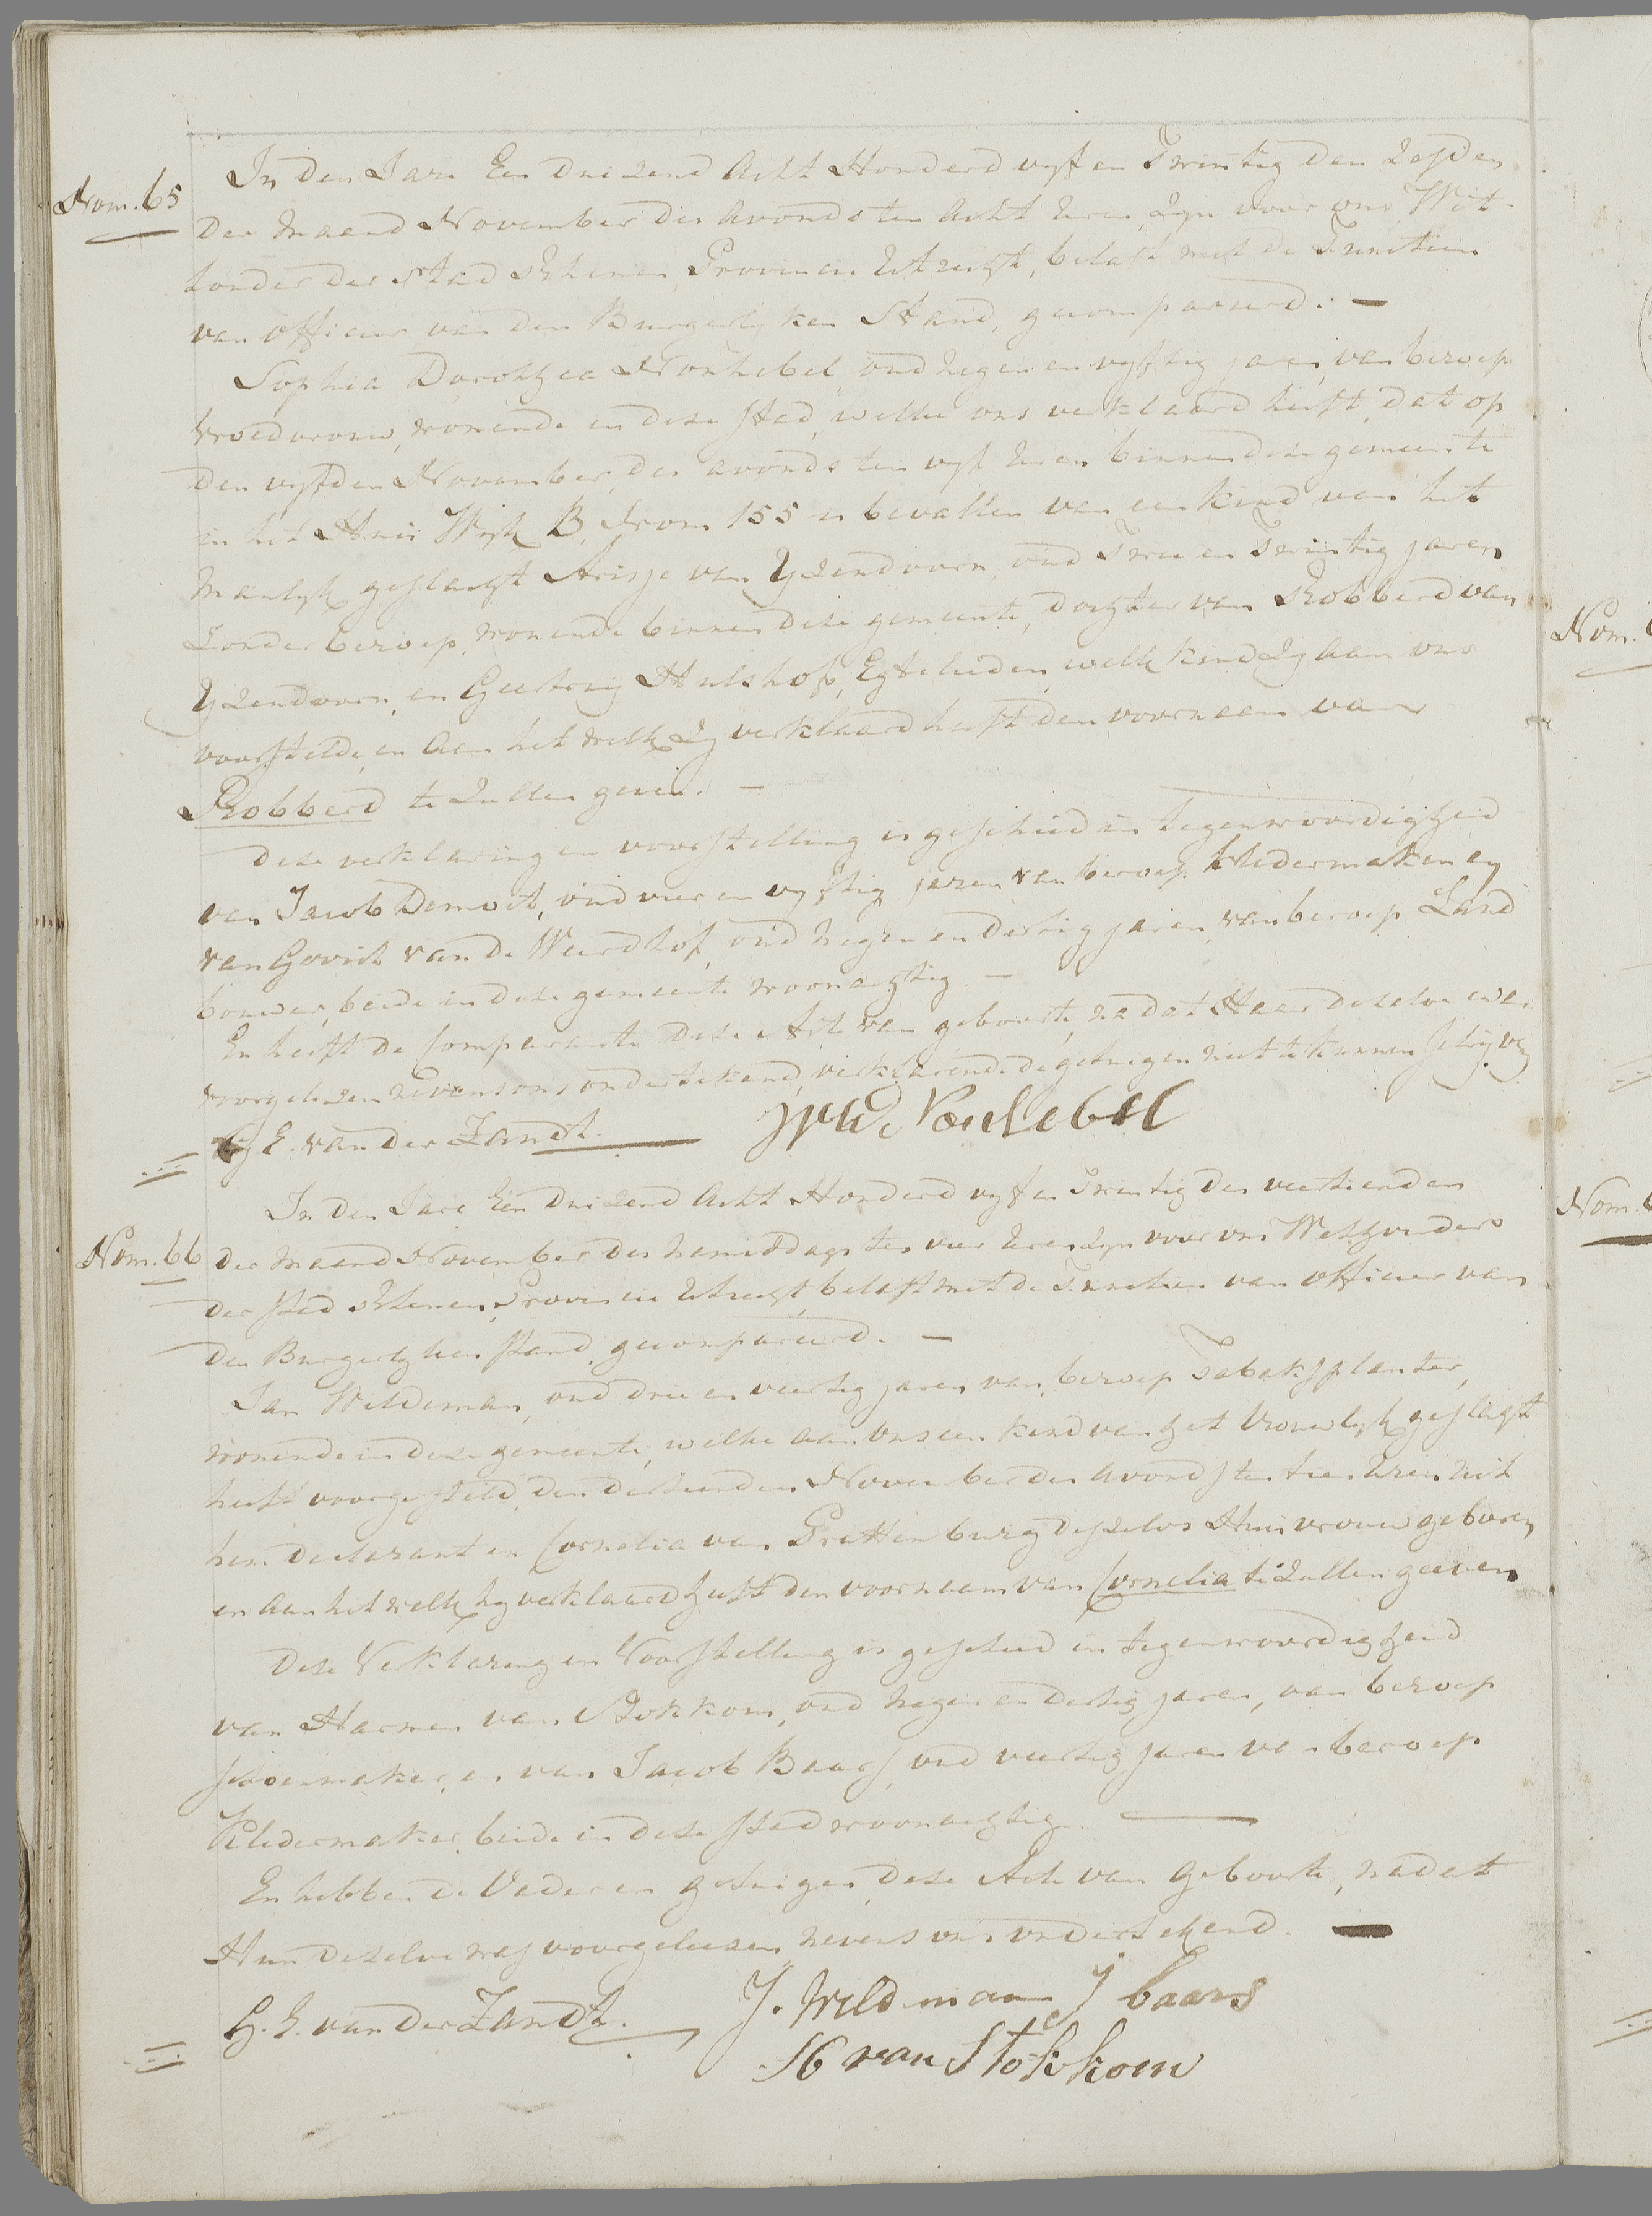 Nom. 65
In den Jare Een Duizend Acht Honderd vyf en Twintig den Zesden
der Maand November des Avonds ten Acht Uren, Zyn voor ons Wet-
houder der Stad Rhenen, Provincie Utrecht, belast met de Functien
van officier van den Burgerlyken Stand, gecompareerd. —
Sophia Dorothea Nonhebel, oud Negen en vyftig jaren, van beroep
Vroedvrouw, wonende in deze stad, welke ons verklaard heeft, dat op
den vyfden November, des avonds ten vyf Uren binnen deze gemeente
in het Huis Wyk B. Nom 155 is bevallen van een kind van het
Manlyk geslacht Arisje van Yzendoorn, oud Twee en Twintig jaren
Zonder beroep, wonende binnen deze gemeente, dochter van Robberd van
Yzendoorn, en Geertruy Hulshof, Egtelieden, welk kind Zy Aan ons
voorstelde, en Aan het welk Zy verklaard heeft den voornaam van
Robberd te Zullen geven. —
Deze verklaring en voorstelling is geschied in tegenwoordigheid
van Jacob Demoet, oud vier en vyftig jaren van beroep kledermaker en
van Govert van de Weerdhof, oud negen en Dertig jaren, van beroep Land
bouwer, beide in deze gemeente woonachtig. —
En heeft de Comparante deze Acte van geboorte, na dat Haar dezelve was
voorgelezen nevens ons ondertekend, verklarende de getuigen niet te kunnen Schryven
G. E. van der Zandt. S W D Nonhebel
Nom. 66
In den Jare Een Duizend Acht Honderd vyf en Twintig den veertienden
der Maand November des namiddags ten vier Uren Zyn voor ons Wethouder
der Stad Rhenen, Provincie Utrecht, belast met de Functien van officier van
den Burgerlyken Stand, gecompareerd. —
Jan Wildeman, oud drie en veertig jaren van beroep Tabaksplanter,
wonende in deze gemeente, welke aan ons een kind van het Vrouwlyk geslacht
heeft voorgesteld, den dertienden November des Avonds ten tien Uren uit
hem declarant en Cornelia van Grettenburg deszelvs Huisvrouw geboren,
en Aan het welk hy verklaard heeft den voornaam van Cornelia te Zullen geeven
Deze Verklaring en Voorstelling is geschied in tegenwoordigheid
van Harmen van Stokkom, oud Negen en Dertig jaren, van beroep
schoenmaker, en van Jacob Baars, oud veertig jaren van beroep
Kledermaker, beide in deze stad woonachtig.
En hebben de Vader en getuigen, deze Acte van Geboorte, nadat
Hun dezelve was voorgeleezen nevens ons ondertekend. —
G. E. van der Zandt. J. Wildeman J baars
H van Stokkom
Nom.
Nom.